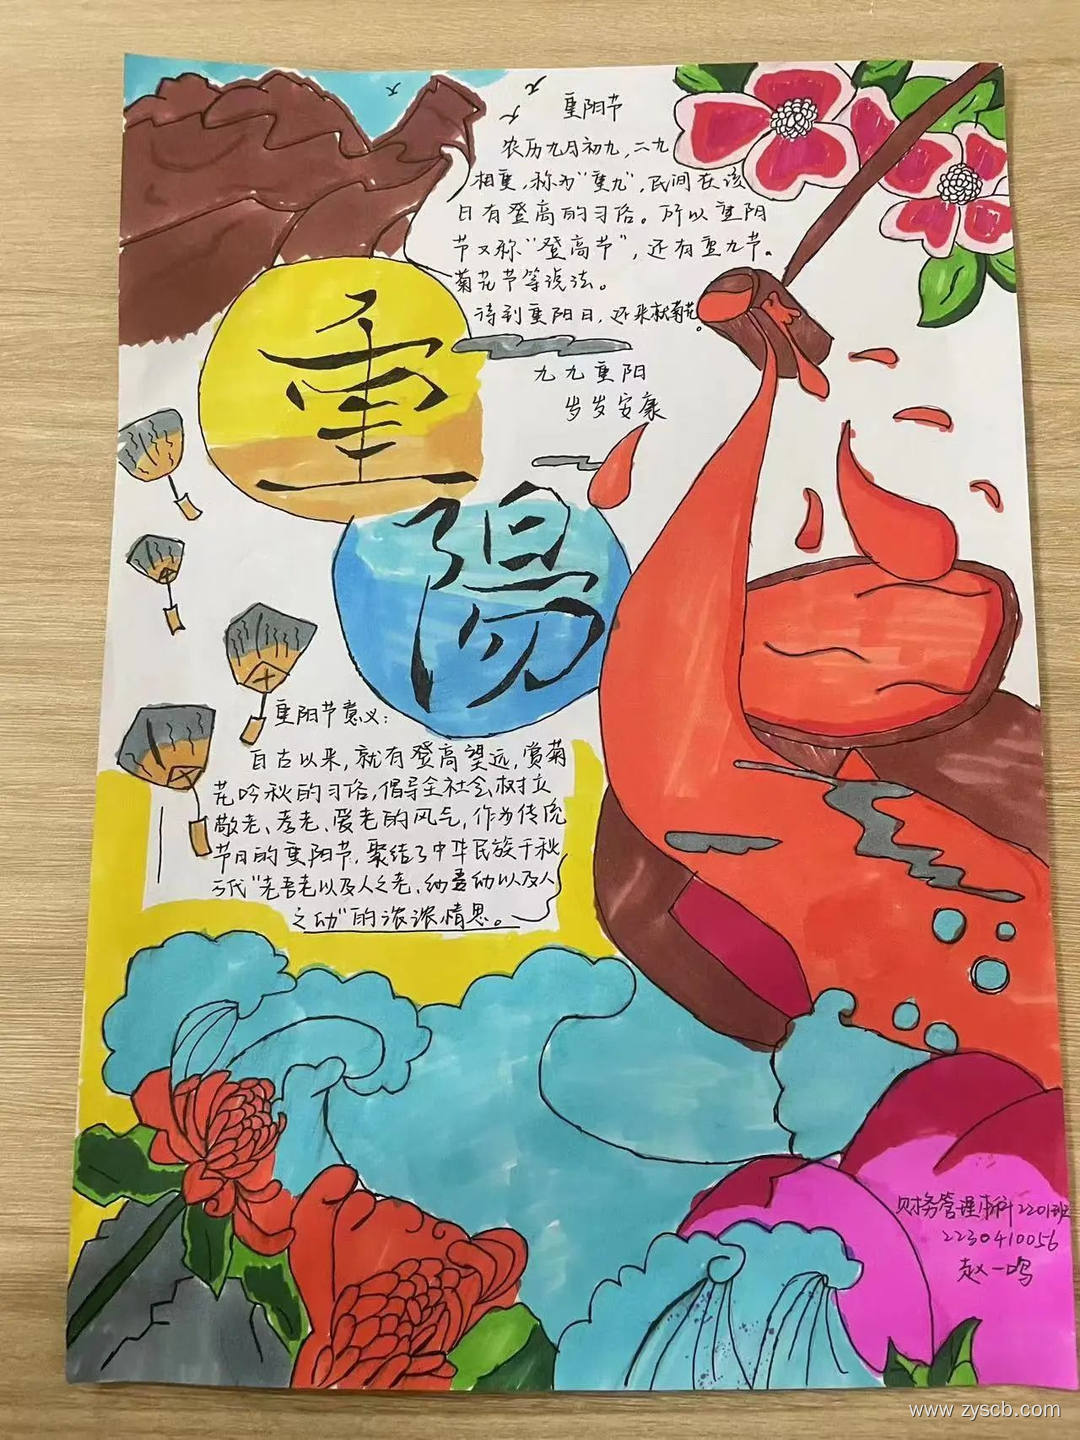 重阳节
农历九月初九，二九
相重，称为“重九”，民间在该
日有登高的习俗。所以重阳
节又称“登高节”，还有重九节。
菊花节等说法。
待到重阳日，还来就菊花。
九九重阳
岁岁安康
重陽
重阳节意义：
自古以来，就有登高望远，赏菊
花吟秋的习俗，倡导全社会树立
敬老、孝老、爱老的风气，作为传统
节日的重阳节，聚结了中华民族千秋
万代“老吾老以及人之老、幼吾幼以及人
之幼”的浓浓情思。
财务管理本科2201班
2230410056
赵一鸣
www.zyscb.com